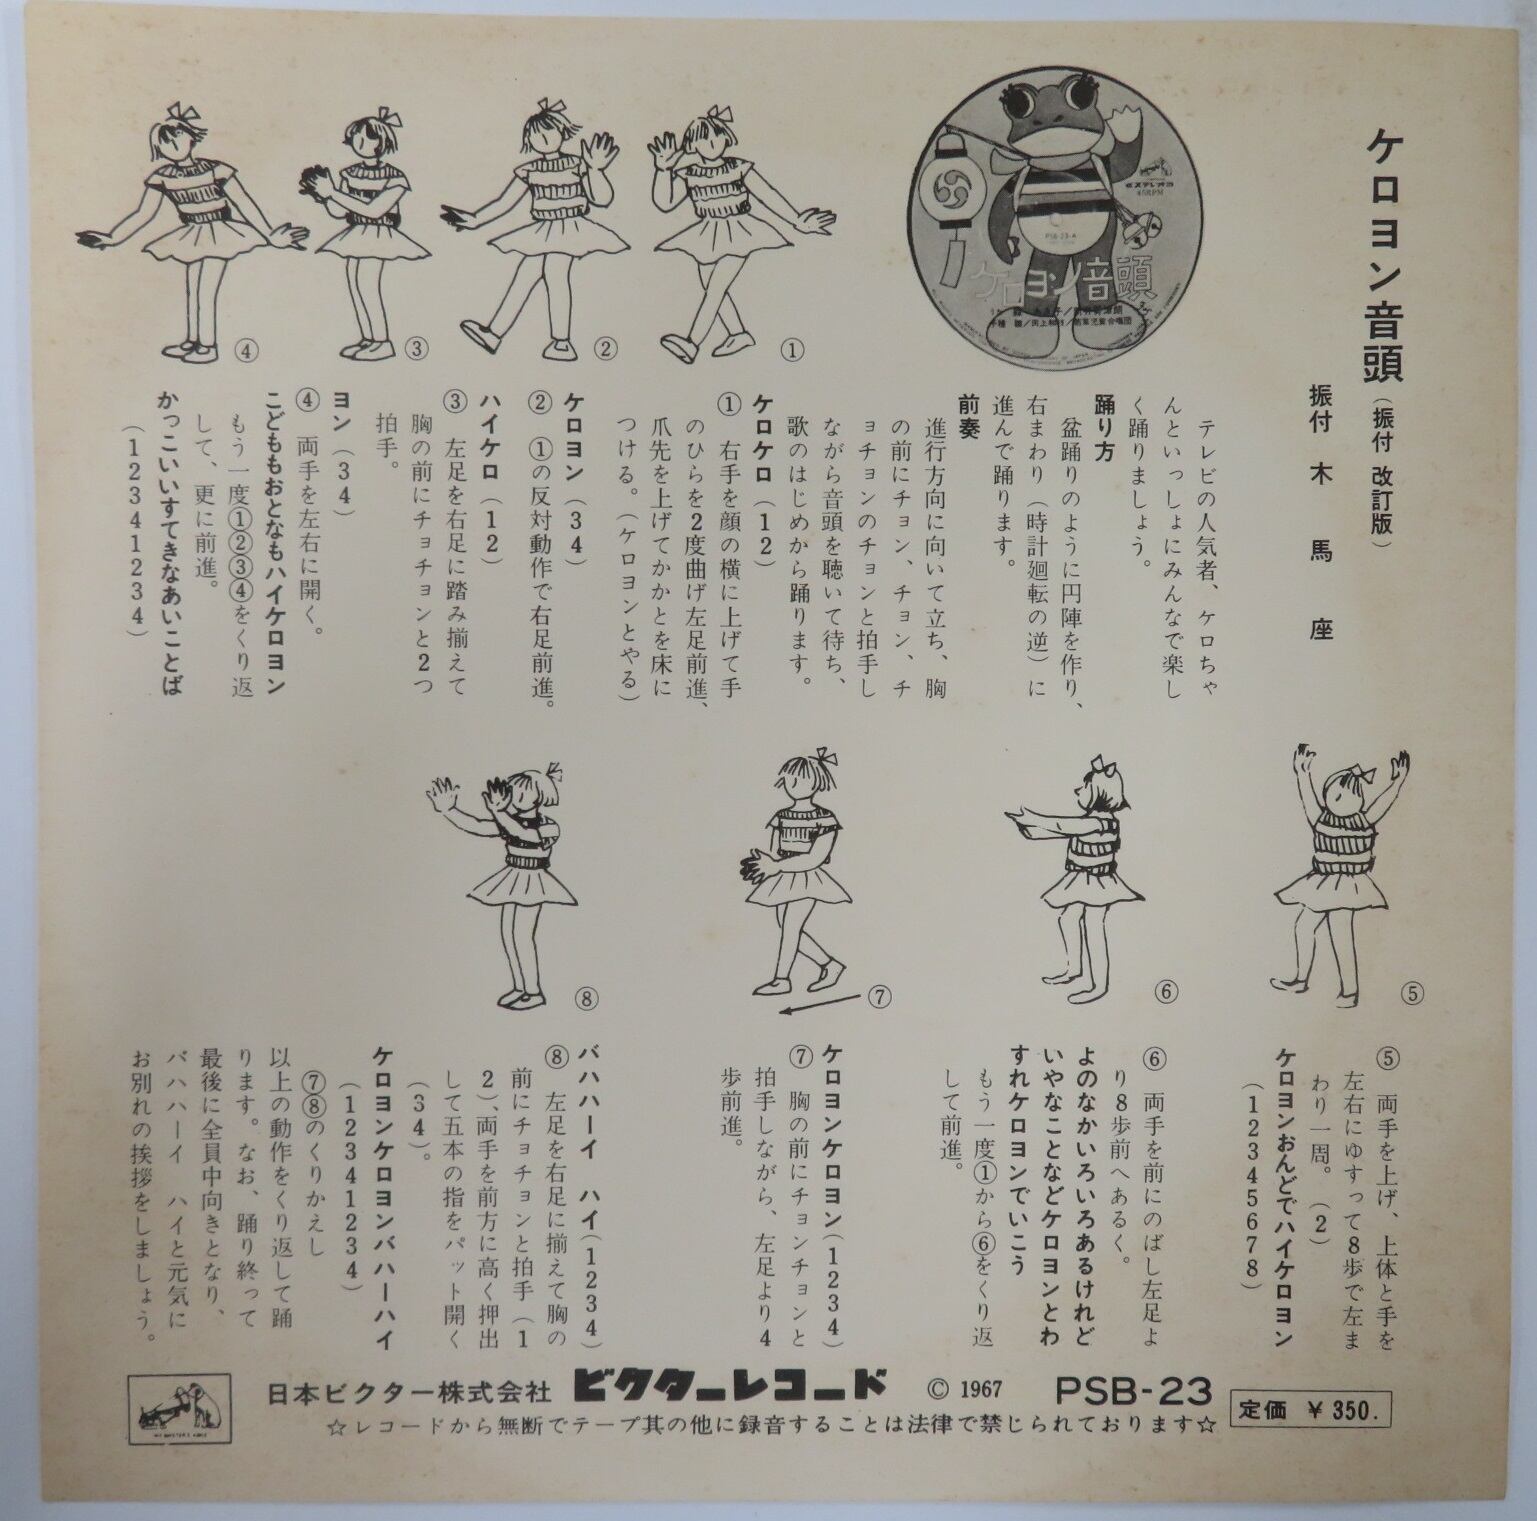 ケロヨン音頭(振付 改訂版)
振付 木馬座
テレビの人気者、ケロちゃ
んといっしょにみんなで楽し
く踊りましょう。
踊り方
盆踊りのように円陣を作り、
右まわり(時計廻転の逆)に
進んで踊ります。
前奏
進行方向に向いて立ち、胸
の前にチョン、チョン、チ
ョチョンのチョンと拍手し
ながら音頭を聴いて待ち、
歌のはじめから踊ります。
ケロケロ(12)
① 右手を顔の横に上げて手
のひらを2度曲げ左足前進、
爪先を上げてかかとを床に
つける。(ケロヨンとやる)
ケロヨン(34)
② ①の反対動作で右足前進。
ハイケロ(12)
③ 左足を右足に踏み揃えて
胸の前にチョチョンと2つ
拍手。
ヨン(34)
④ 両手を左右に開く。
こどももおとなもハイケロヨン
もう一度①②③④をくり返
して、更に前進。
かっこいいすてきなあいことば
(12341234)
①
②
③
④
ステレオ
45RPM
PSB-23-A
ケロヨン音頭
⑤
⑥
⑦
⑧
⑤ 両手を上げ、上体と手を
左右にゆすって8歩で左ま
わり一周。(2)
ケロヨンおんどでハイケロヨン
(12345678)
⑥ 両手を前にのばし左足よ
り8歩前へあるく。
よのなかいろいろあるけれど
いやなことなどケロヨンとわ
すれケロヨンでいこう
もう一度①から⑥をくり返
して前進。
ケロヨンケロヨン(1234)
⑦ 胸の前にチョンチョンと
拍手しながら、左足より4
歩前進。
バハハーイ ハイ(1234)
⑧ 左足を右足に揃えて胸の
前にチョチョンと拍手(1
2)、両手を前方に高く押出
して五本の指をパット開く
(34)。
ケロヨンケロヨンバハーハイ
(12341234)
⑦⑧のくりかえし
以上の動作をくり返して踊
ります。なお、踊り終って
最後に全員中向きとなり、
バハハーイ ハイと元気に
お別れの挨拶をしましょう。
日本ビクター株式会社 ビクターレコード © 1967 PSB-23 定価 ¥350.
☆レコードから無断でテープ其の他に録音することは法律で禁じられております☆